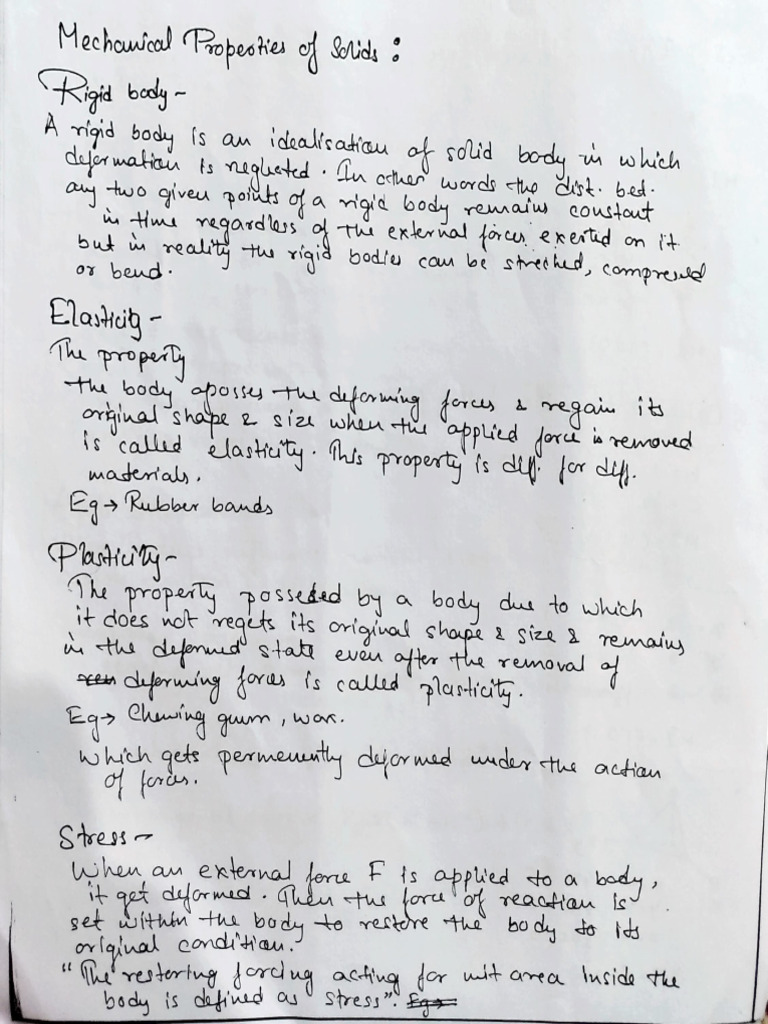 Mechanical Properties of Solids :
Rigid body -
A rigid body is an idealisation of solid body in which
deformation is neglected. In other words the dist. bet.
any two given points of a rigid body remains constant
in time regardless of the external forces exerted on it
but in reality the rigid bodies can be streched, compressed
or bend.
Elasticity -
The property
the body aposses the deforming forces & regain its
original shape & size when the applied force is removed
is called elasticity. This property is diff. for diff.
materials.
Eg → Rubber bands
Plasticity -
The property possessed by a body due to which
it does not regets its original shape & size & remains
in the deformed state even after the removal of
deforming forces is called plasticity.
Eg → Chewing gum, wax.
Which gets permenently deformed under the action
of forces.
Stress -
When an external force F is applied to a body,
it get deformed. Then the force of reaction is
set within the body to restore the body to its
original condition.
"The restoring forcing acting for unit area inside the
body is defined as stress". Eg →